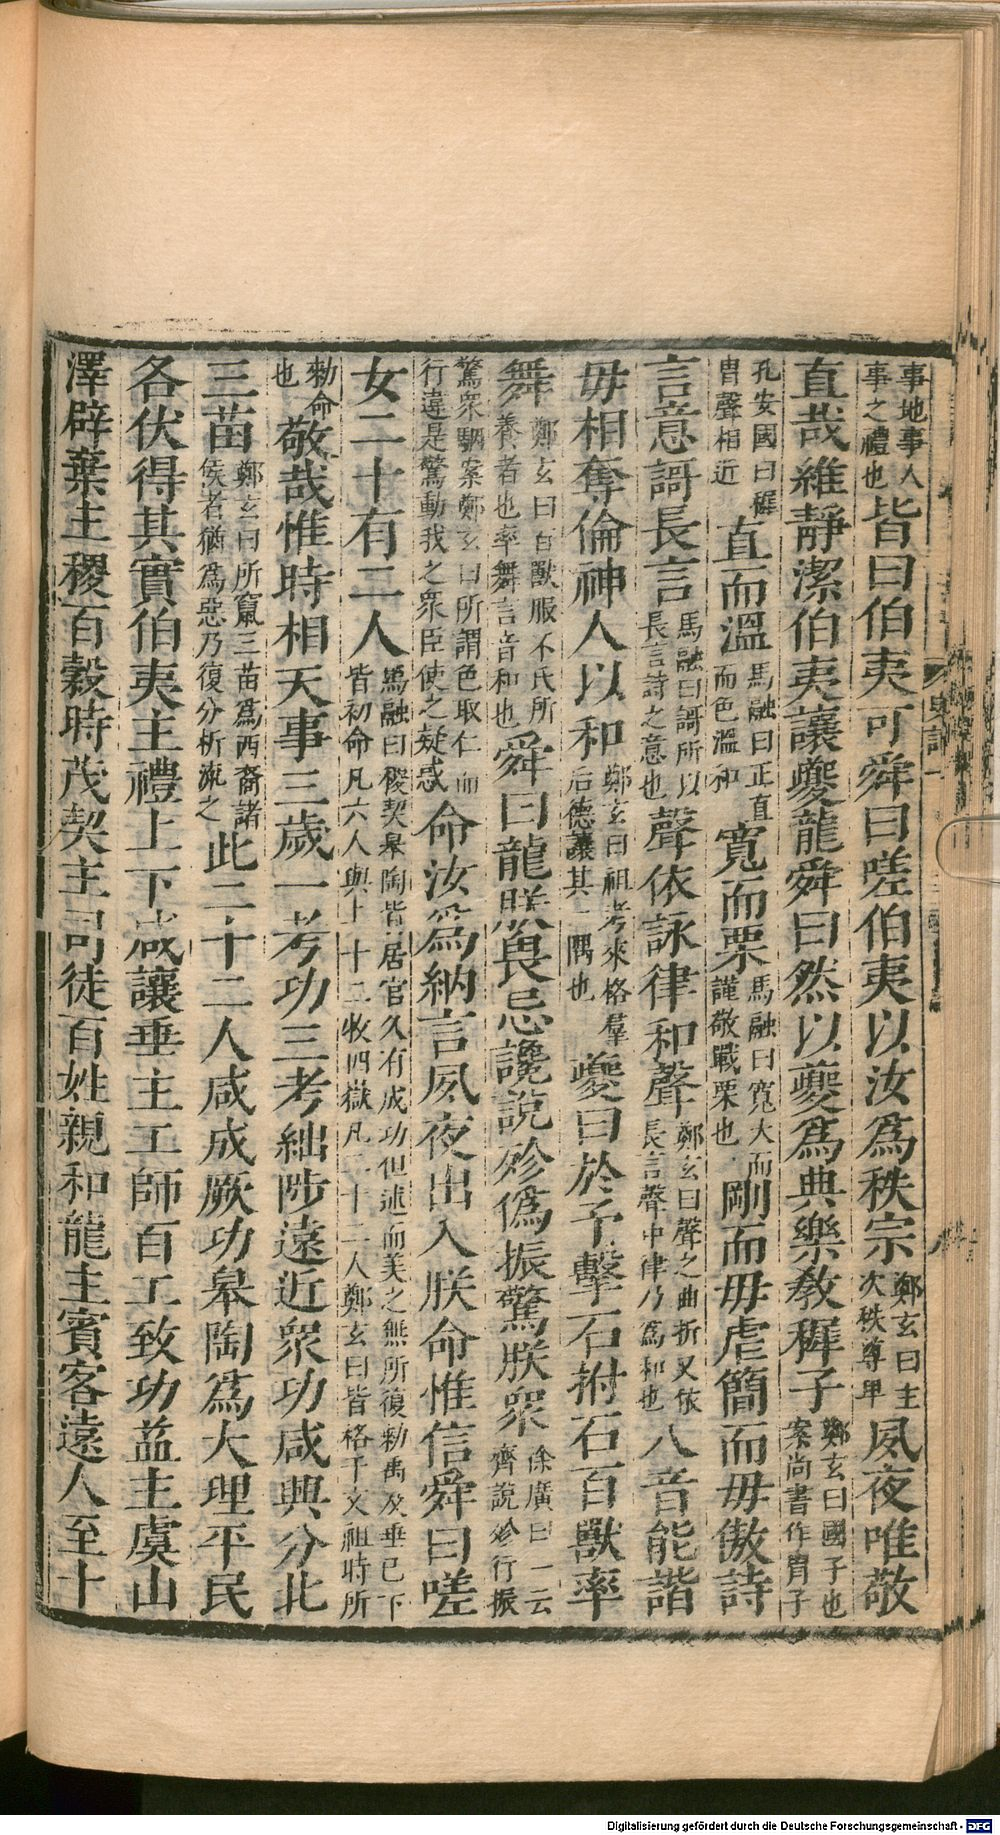 事地事人事之禮也皆曰伯夷可舜曰嗟伯夷以汝爲秩宗鄭玄曰主次秩尊卑夙夜唯敬
直哉維靜潔伯夷讓夔龍舜曰然以夔爲典樂敎穉子鄭玄曰國子也案尚書作胄子
孔安國曰穉胄聲相近直而溫馬融曰正直而色溫和寬而栗馬融曰寬大而謹敬戰栗也剛而毋虐簡而毋傲詩
言意謌長言馬融曰謌所以長言詩之意也聲依詠律和聲鄭玄曰聲之曲折又依長言聲中律乃爲和也八音能諧
毋相奪倫神人以和鄭玄曰祖考來格羣后德讓其一隅也夔曰於予擊石拊石百獸率
舞鄭玄曰百獸服不氏所養者也率舞言音和也舜曰龍朕畏忌讒說殄僞振驚朕眾徐廣曰一云齊說殄行振
驚眾駰案鄭玄曰所謂色取仁而行違是驚動我之眾臣使之疑惑命汝爲納言夙夜出入朕命惟信舜曰嗟
女二十有二人馬融曰稷契皋陶皆居官久有成功但述而美之無所復勑禹及垂已下皆初命凡六人與上十二牧四嶽凡二十二人鄭玄曰皆格于文祖時所
勑命也敬哉惟時相天事三歲一考功三考絀陟遠近眾功咸興分北
三苗鄭玄曰所竄三苗爲西裔諸侯者猶爲惡乃復分析流之此二十二人咸成厥功皋陶爲大理平民
各伏得其實伯夷主禮上下咸讓垂主工師百工致功益主虞山
澤辟棄主稷百穀時茂契主司徒百姓親和龍主賓客遠人至十
史記一
Digitalisierung gefördert durch die Deutsche Forschungsgemeinschaft - DFG